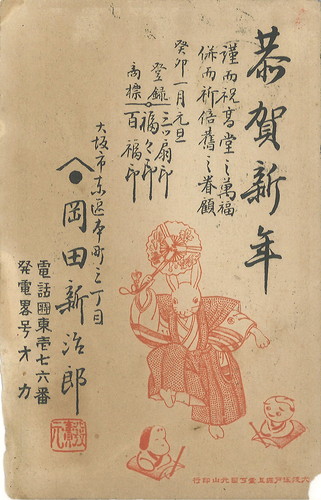 恭賀新年
謹而祝高堂之萬福
併而祈倍舊之眷顧
癸卯一月元旦
登録 三ツ扇印
福々印
商標 百福印
大坂市東區本町三丁目
岡田新治郎
電話圈東壱七六番
発電畧号オカ